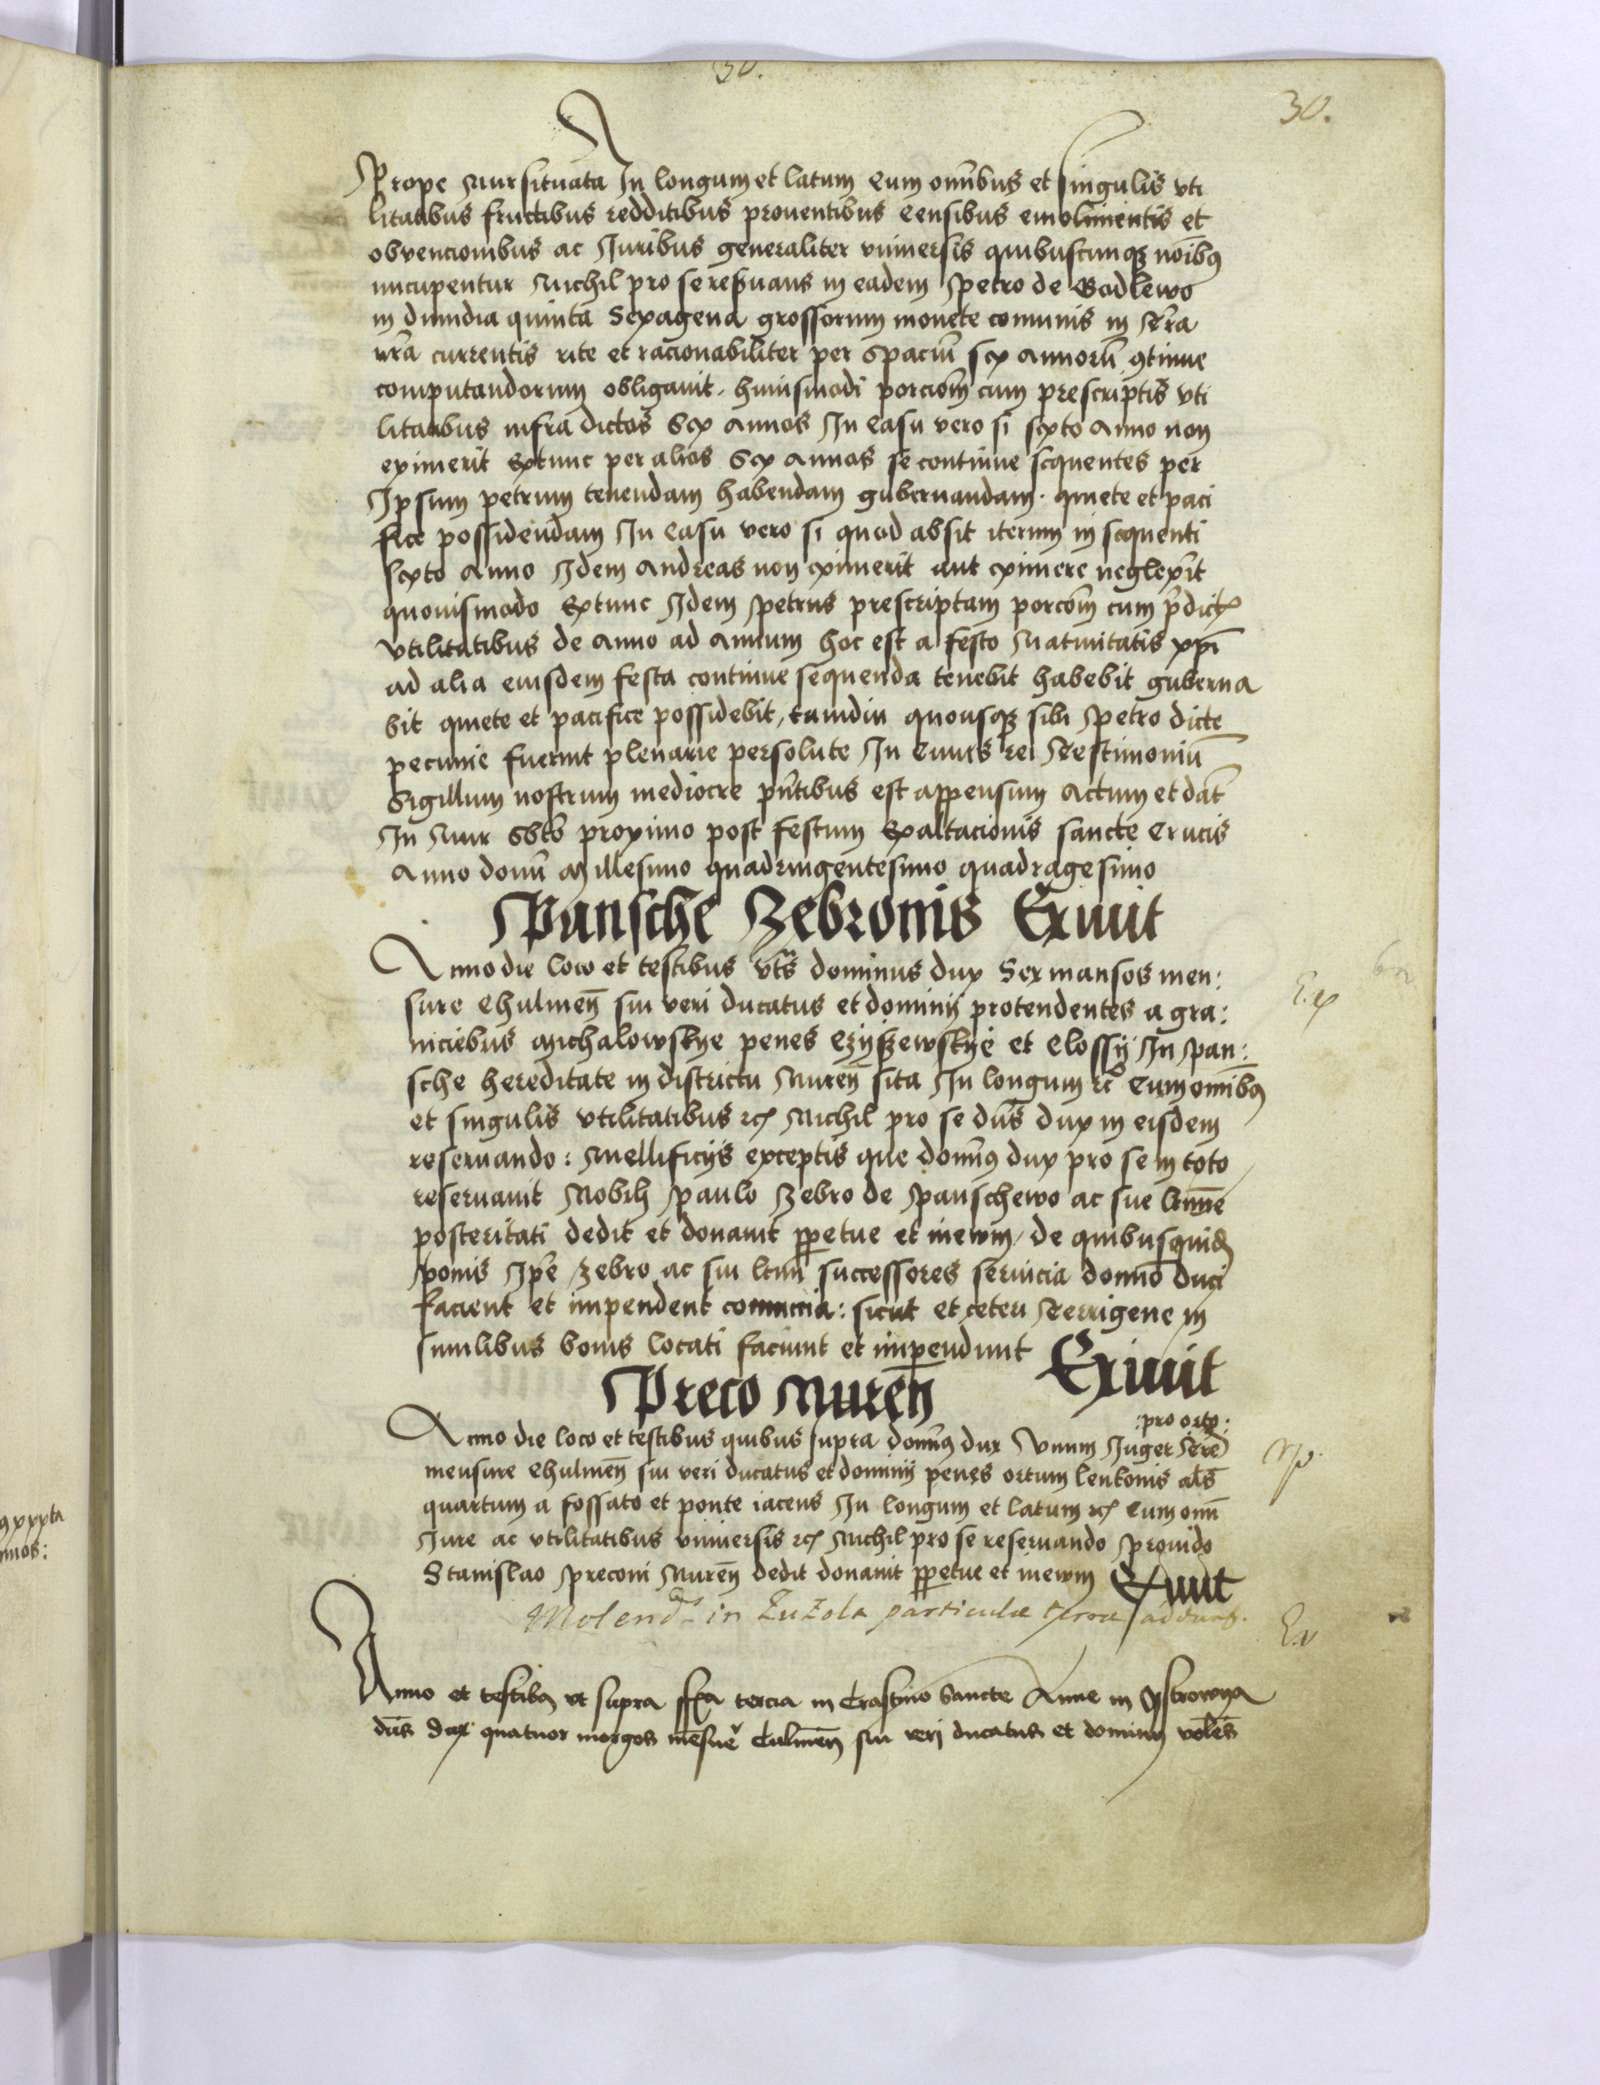 30.
30.
Prope Nur situata In longum et latum Cum om̄ibus et singulis vti
litatibus fructibus redditibus prouentibus Censibus emolimentis et
obvencionibus ac Iuribus generaliter vniuersis quibuscunqꝫ nōibꝰ
nncupentur Nichil pro se reseruans in eadem Petro de Godlewo
in dimidia quinta Sexagena grossorum monete comunis in Terra
nr̄a currentis rite et racionabiliter per spaciū sex annorū ꝯtinue
computandorum obligauit huiusmodi porciom̄ cum prescriptis vti
litatibus infra dictos Sex annos In Casu vero si sexto anno non
eximerit Extunc per alios Sex annos se continue sequentes per
Ipsum petrum tenendam habendam gubernandam quiete et paci
fice possidendam In Casu vero si quod absit iterum in sequenti
sexto anno Idem Andreas non eximerit aut eximere neglexīt
quouismodo Extunc Idem Petrus prescriptam porcōm cum p̄dict
vtilitatibus de Anno ad annum hoc est a festo Natiuitatis xp̄i
ad alia eiusdem festa continue sequenda tenebit habebit guberna
bit quiete et pacifice possidebit, tamdiu quousqꝫ sibi Petro dicte
pecunie fuerint plenarie persolute In Cuius rei Testimoniū
Sigillum nostrum mediocre pn̄tibus est appensum Actum et dat̄
In Nur Sbto proximo post festum Exaltacionis sancte Crucis
Anno domī Millesimo quadringentesimo quadragesimo
Pansche Zebronis Exiuit
Anno die loco et testibus vts̄ dominus dux Sex mansos men:
sure Chulmen̄ sui veri ducatus et dominij protendentes a gra:
niciebus Michalowskye penes Czyszewskye et Clossij In Pan:
sche hereditate in districtu Nuren̄ sita In longum rc̄ Cum om̄ibꝰ
et singulis vtilitatibus rc̄ Nichil pro se dn̄s dux in eisdem
reseruando: Mellificijs exceptis que domn̄ꝰ dux pro se in toto
reseruauit Nobili Paulo Zebro de Panschewo ac sue ltime
posteritati dedit et donauit ꝑpetue et inewm, de quibusquidē
bonis Ipe Zebro ac sui ltimi successores seruicia domino duci
facient et impendent comunia: sicut et ceteri Terrigene in
similibus bonis locati faciunt et impendunt Exiuit
Preco Nuren̄
:pro orto:
Anno die loco et testibus quibus supra domn̄ꝰ dux Vnum Iuger Tere
mensure Chulmen̄ sui veri ducatus et dominij penes ortum lenkonis als̄
quartum a fossato et ponte iacens In longum et latum rc̄ Cum omī
Iure ac vtilitatibus vniuersis rc̄ Nichil pro se reseruando Prouido
Stanislao Preconi Nuren̄ dedit donauit ꝑpetue et inewm Exiuit
Molend in Zuzola particula terra
Anno et testibꝰ vt supra feria tercia in Crastino Sancte Anne in Ostrowya
dn̄s dux quatuor morgos mēsure Culmen̄ sui veri ducatus et dominij volēs